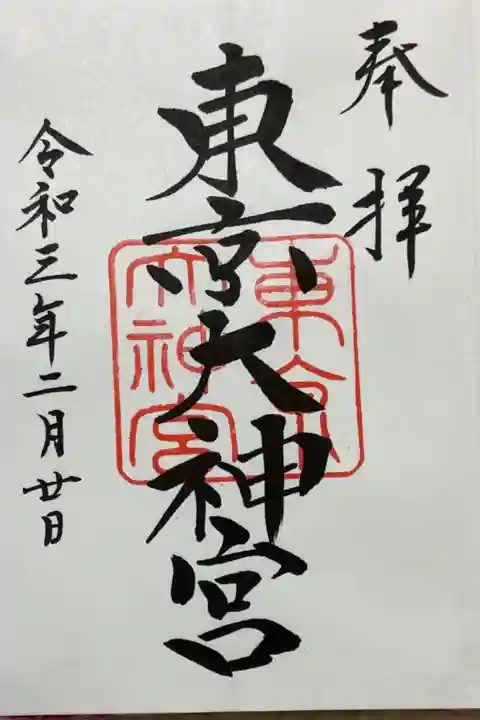 奉拝
東京大神宮
東京
大神宮
令和三年二月廿日